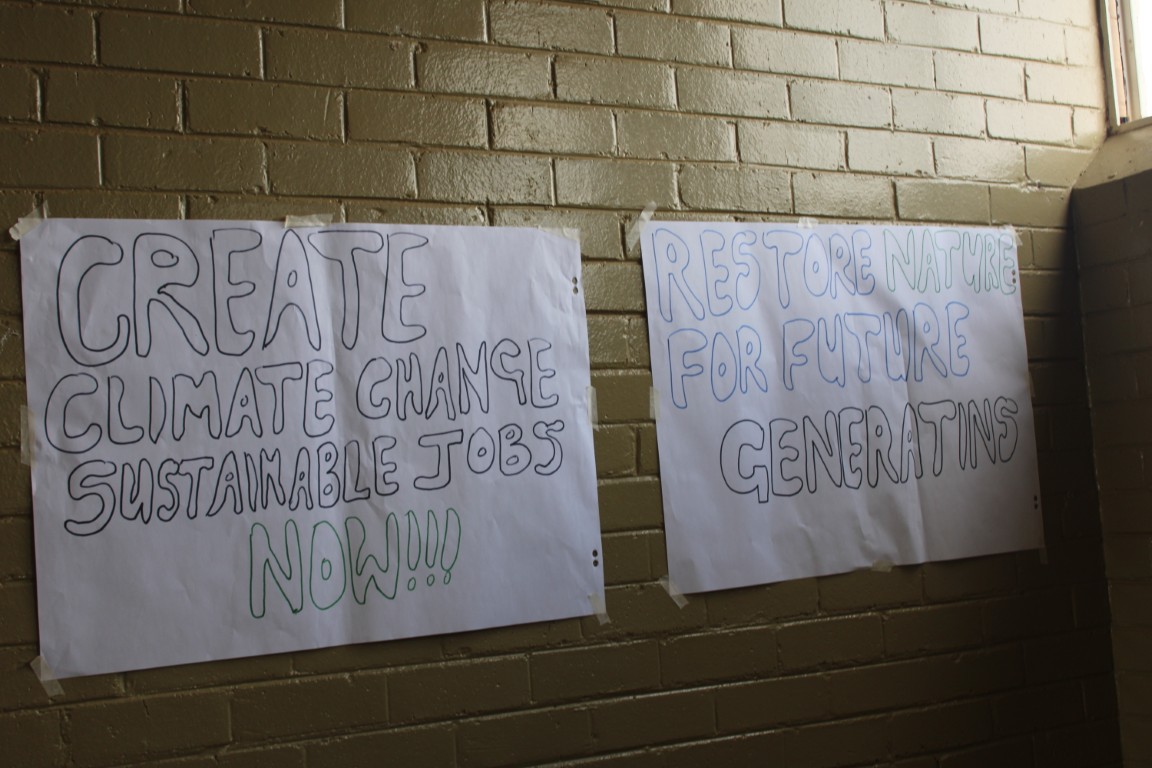 CREATE
CLIMATE CHANGE
SUSTAINABLE JOBS
NOW!!!
RESTORE NATURE
FOR FUTURE
GENERATINS